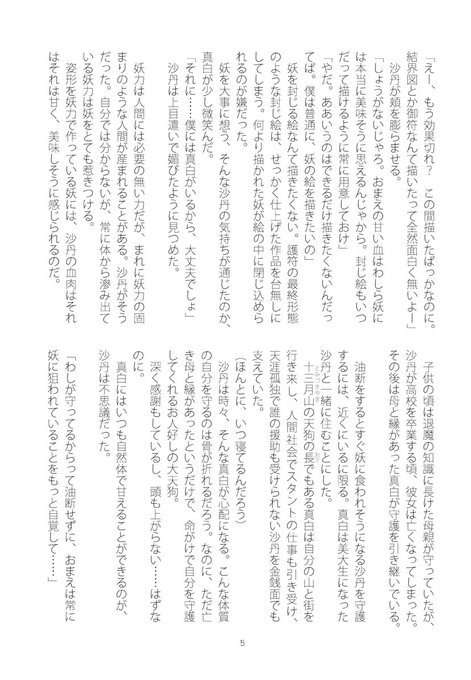 「えー、もう効果切れ？　この間描いたばっかなのに。
結界図とか御符なんて描いたって全然面白く無いよー」
　沙丹が頬を膨らませる。
「しょうがないじゃろ。おまえの甘い血はわしら妖に
は本当に美味そうに思えるんじゃから。封じ絵もいつ
だって描けるように常に用意しておけ」
「やだ。ああいうのはできるだけ描きたくないんだっ
てば。僕は普通に、妖の絵を描きたいの」
　妖を封じる絵なんて描きたくない。護符の最終形態
のような封じ絵は、せっかく仕上げた作品を台無しに
してしまう。何より描かれた妖が絵の中に閉じ込めら
れるのが嫌だった。
　妖を大事に想う、そんな沙丹の気持ちが通じたのか、
真白が少し微笑んだ。
「それに……僕には真白がいるから、大丈夫でしょ」
　沙丹は上目遣いで媚びたように見つめた。
　妖力は人間には必要の無い力だが、まれに妖力の固
まりのような人間が産まれることがある。沙丹がそう
だった。自分では分からないが、常に体から滲み出て
いる妖力は妖をとても惹きつける。
　姿形を妖力で作っている妖には、沙丹の血肉はそれ
はそれは甘く、美味しそうに感じられるのだ。
　子供の頃は退魔の知識に長けた母親が守っていたが、
沙丹が高校を卒業する頃、彼女は亡くなってしまった。
その後は母と縁があった真白が守護を引き継いでいる。
　油断をするとすぐ妖に食われそうになる沙丹を守護
するには、近くにいるに限る。真白は美大生になった
沙丹と一緒に住むことにした。
　十三月山の天狗の長でもある真白は自分の山と街を
行き来し、人間社会でスタントの仕事も引き受け、
天涯孤独で誰の援助も受けられない沙丹を金銭面でも
支えていた。
（ほんとに、いつ寝てるんだろう）
　沙丹は時々、そんな真白が心配になる。こんな体質
の自分を守るのは骨が折れるだろう。なのに、ただ亡
き母と縁があったというだけで、命がけで自分を守護
してくれるお人好しの大天狗。
　深く感謝もしているし、頭も上がらない……はずな
のに。
　真白にはいつも自然体で甘えることができるのが、
沙丹は不思議だった。
「わしが守ってるからって油断せずに、おまえは常に
妖に狙われていることをもっと自覚して……」
5